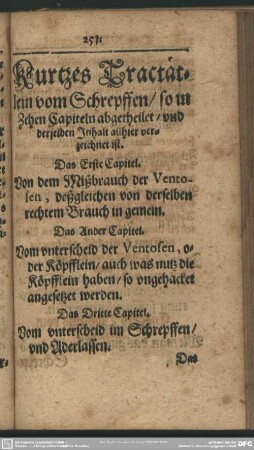 251.
Kurtzes Tractät-
lein vom Schrepffen / so in
Zehen Capiteln abgetheilet / vnd
derselben Inhalt allhier ver-
zeichnet ist.
Das Erste Capitel.
Von dem Mißbrauch der Vento-
sen, deßgleichen von derselben
rechtem Brauch in gemein.
Das Ander Capitel.
Vom vnterscheid der Ventosen, o-
der Köpfflein / auch was nutz die
Köpfflein haben / so vngehacket
angesetzet werden.
Das Dritte Capitel.
Vom vnterscheid im Schrepffen /
vnd Aderlassen.
Das